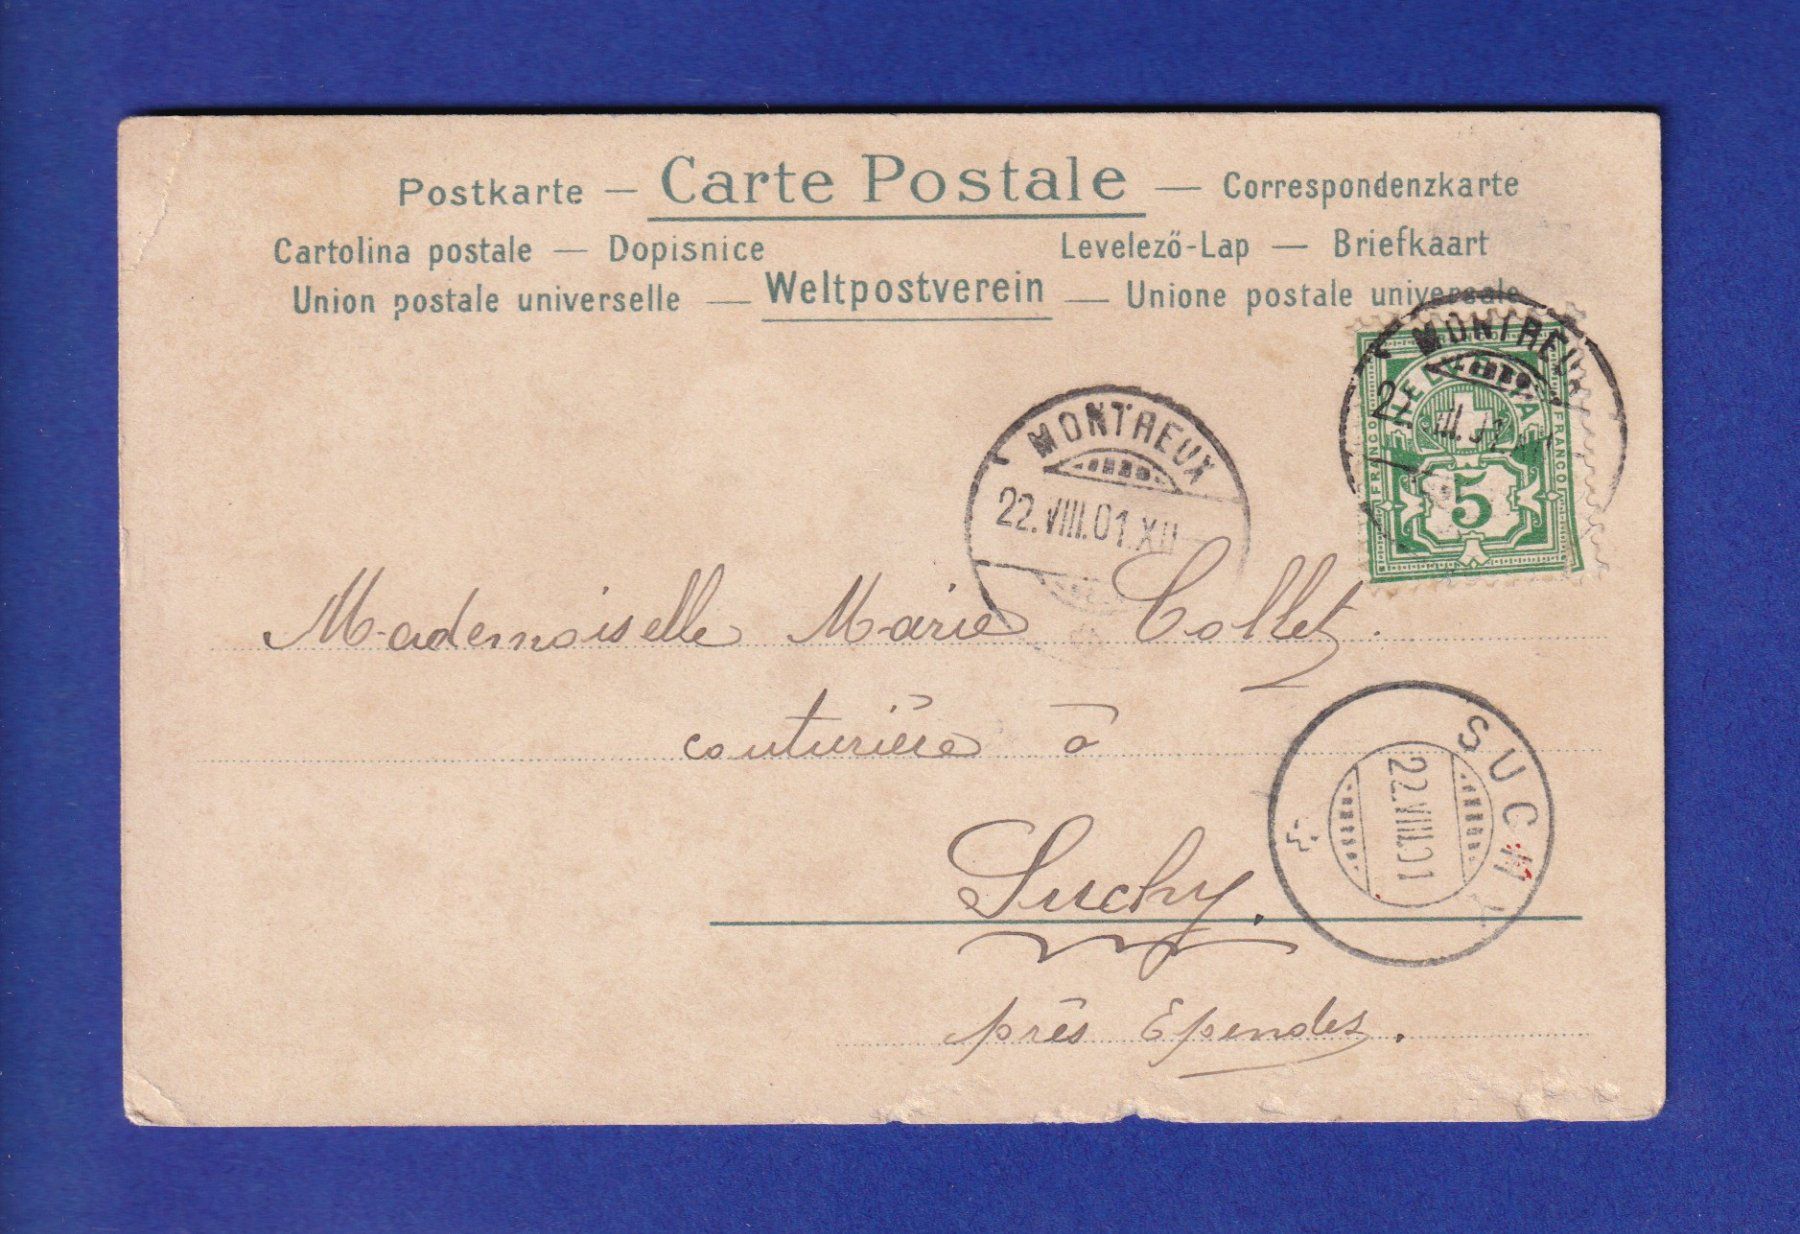 Postkarte — Carte Postale — Correspondenzkarte
Cartolina postale — Dopisnice Levelező-Lap — Briefkaart
Union postale universelle — Weltpostverein — Unione postale universale
MONTREUX
22.VIII.01.XII
MONTREUX
HELVETIA
FRANCO
FRANCO
5
Mademoiselle Marie Collet.
couturière à
SUCHY
22.VIII.01
Suchy.
près Ependes.